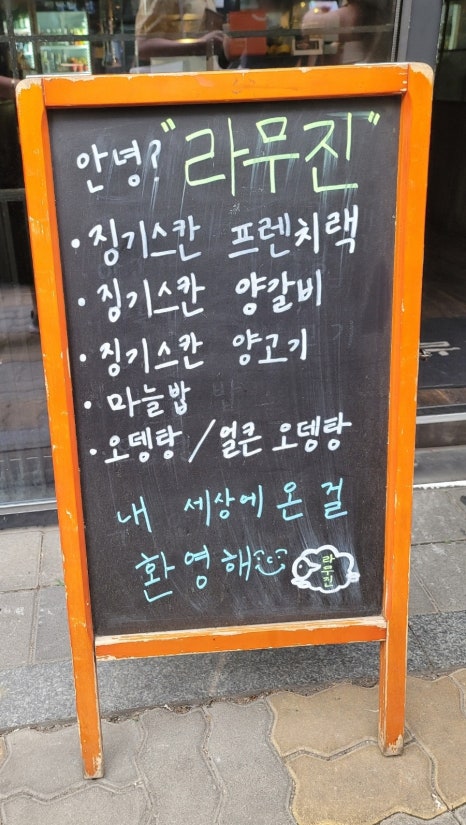 안녕? "라무진"
· 징기스칸 프렌치랙
· 징기스칸 양갈비
· 징기스칸 양고기
· 마늘밥
· 오뎅탕 / 얼큰 오뎅탕
내 세상에 온 걸
환영해
라무진